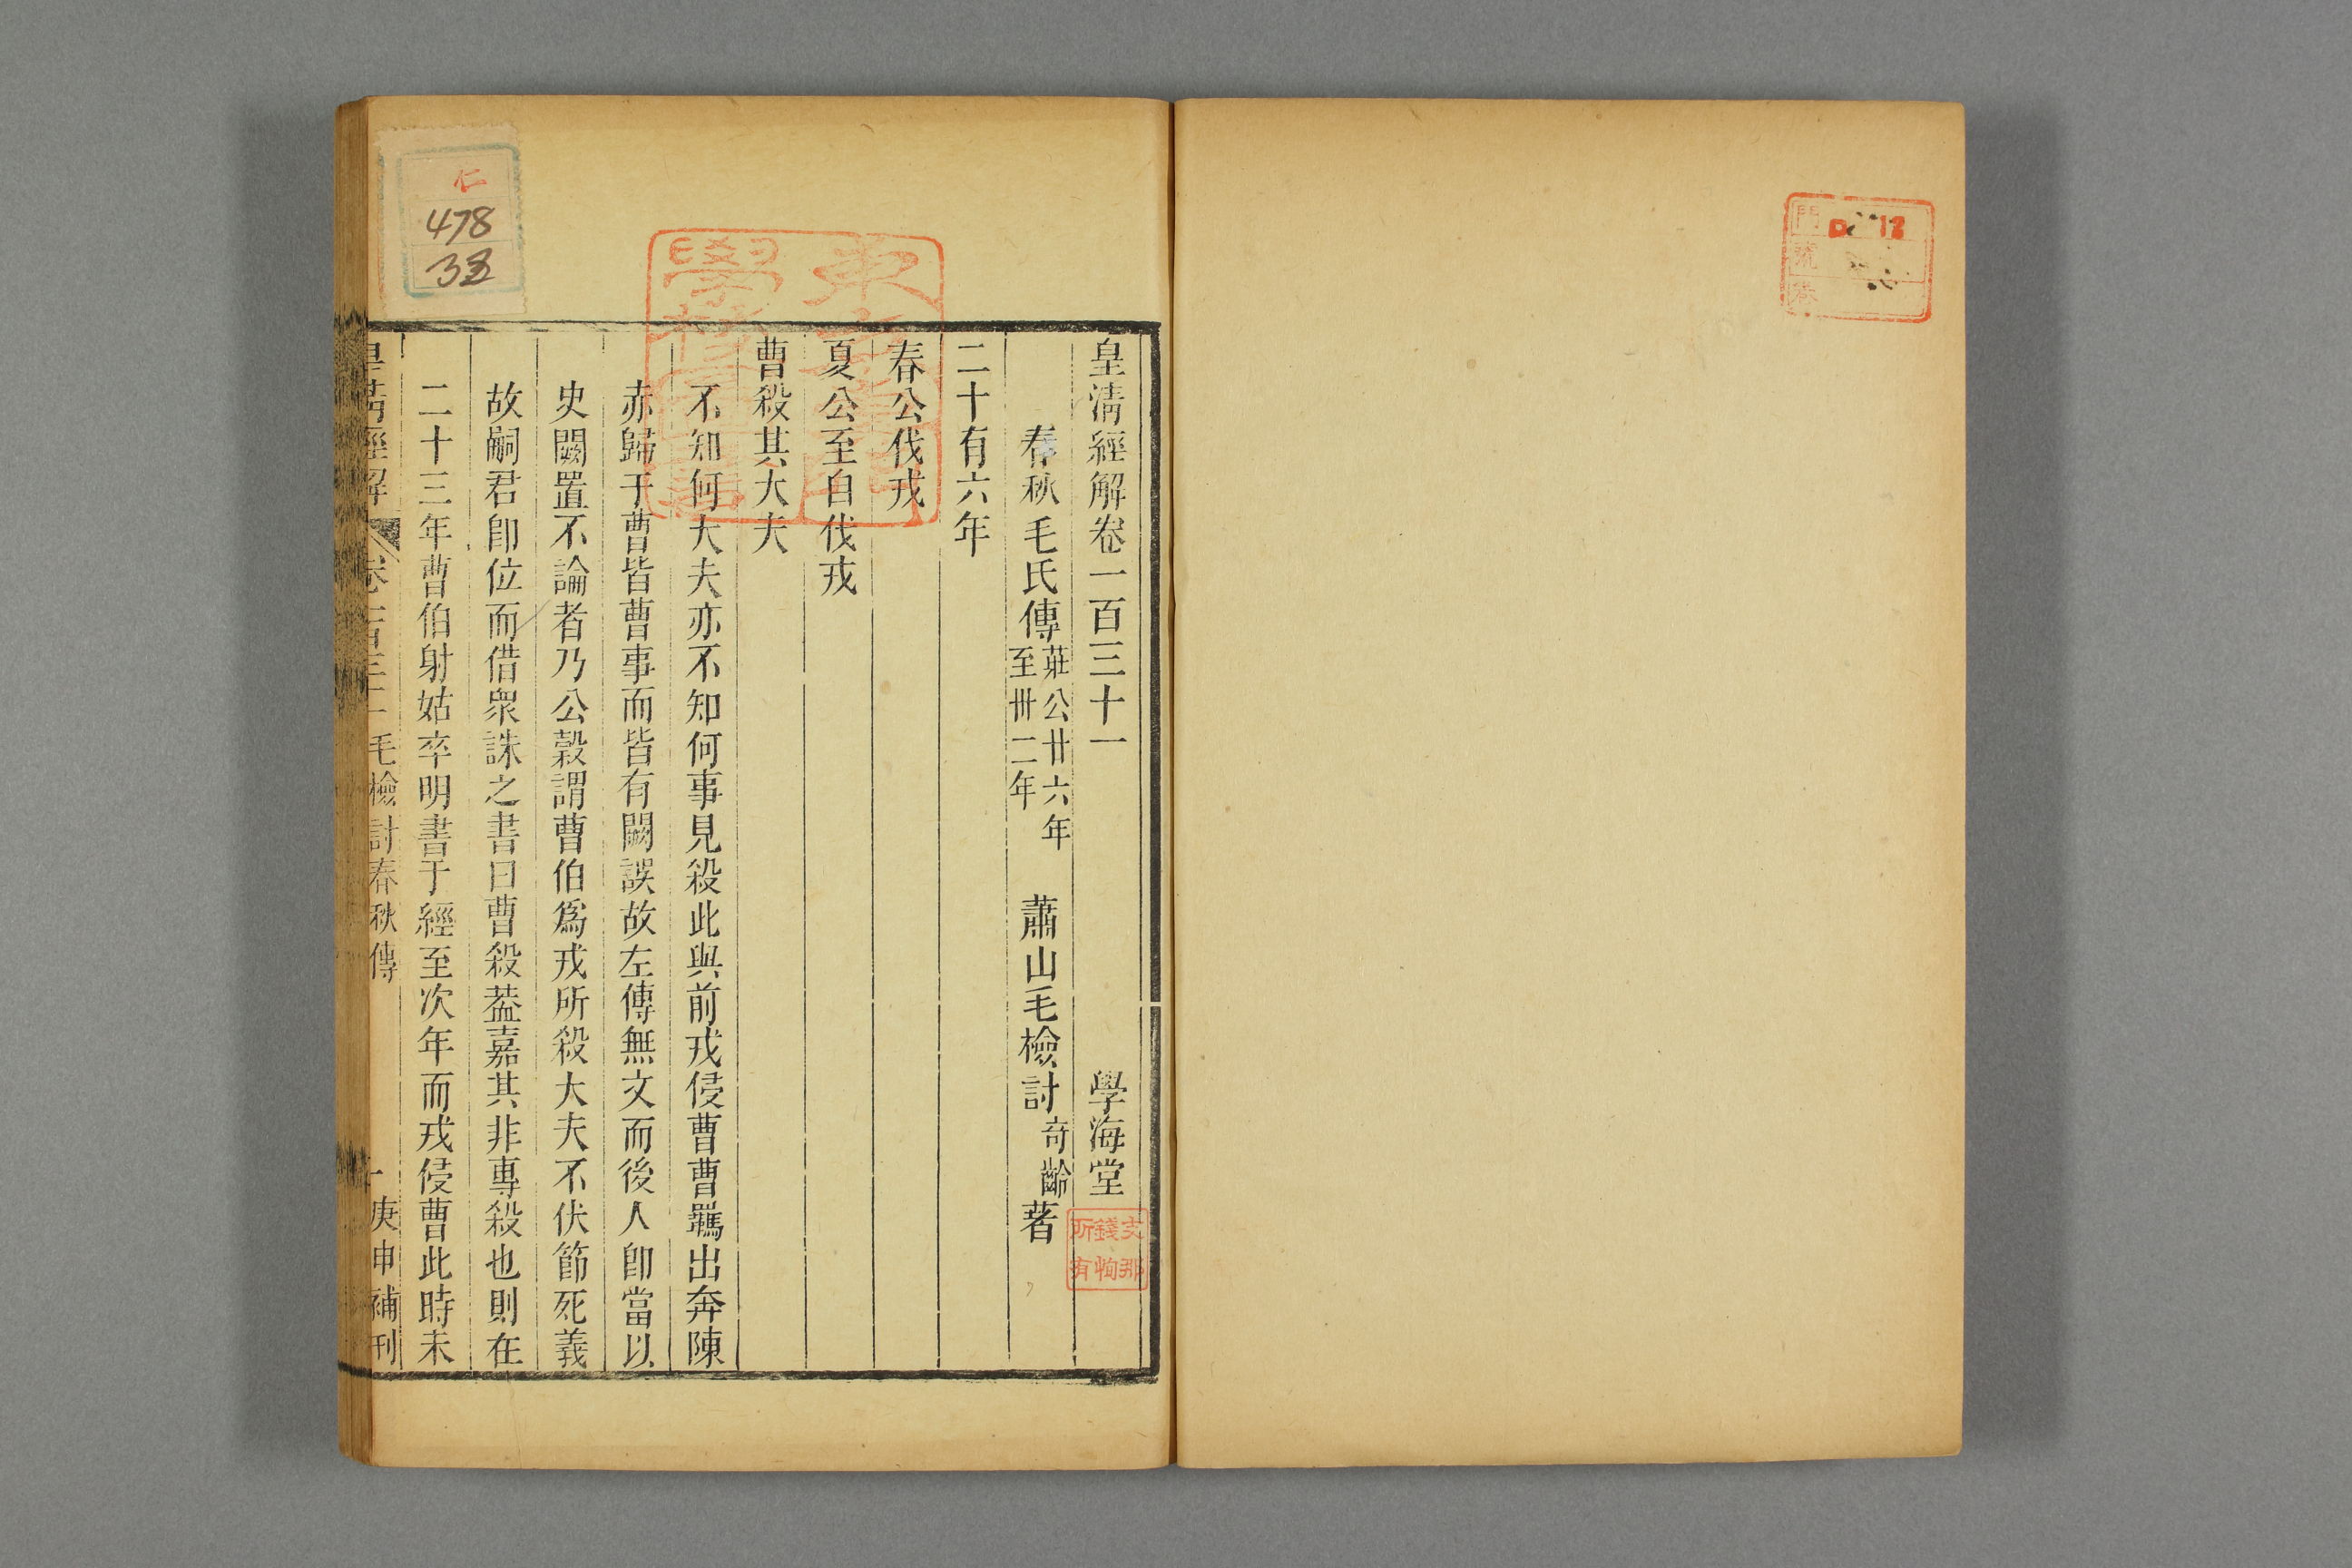 門 D 12
號
皇清經解卷一百三十一 學海堂
春秋毛氏傳 莊公廿六年至卅二年 蕭山毛檢討奇齡著
二十有六年
春公伐戎
夏公至自伐戎
曹殺其大夫
不知何大夫亦不知何事見殺此與前戎侵曹曹羈出奔陳
赤歸于曹皆曹事而皆有闕誤故左傳無文而後人卽當以
史闕置不論者乃公榖謂曹伯爲戎所殺大夫不伏節死義
故嗣君卽位而借衆誅之書曰曹殺葢嘉其非專殺也則在
二十三年曹伯射姑卒明書于經至次年而戎侵曹此時未
皇清經解 卷一百三十一 毛檢討春秋傳 一 庚申補刊
支那
錢恂
所有
仁
478
38